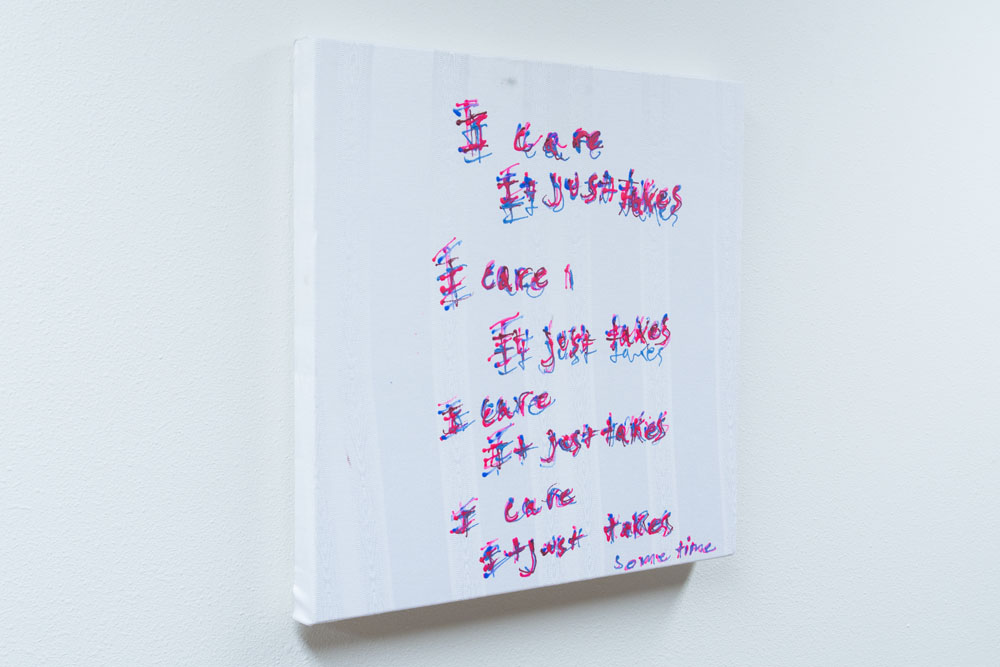 I care
It just takes
I care
It just takes
I care
It just takes
I care
It just takes
some time